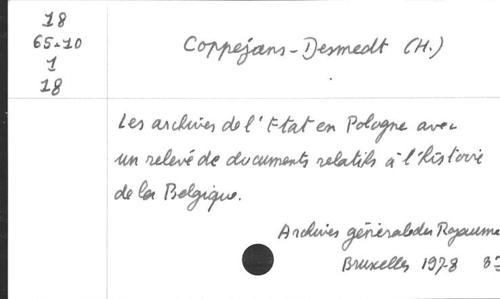 18
65-10
1
18
Coppejans-Desmedt (H.)
Les archives de l'Etat en Pologne avec
un relevé de documents relatifs à l'histoire
de la Belgique.
Archives générales du Royaume
Bruxelles 1978